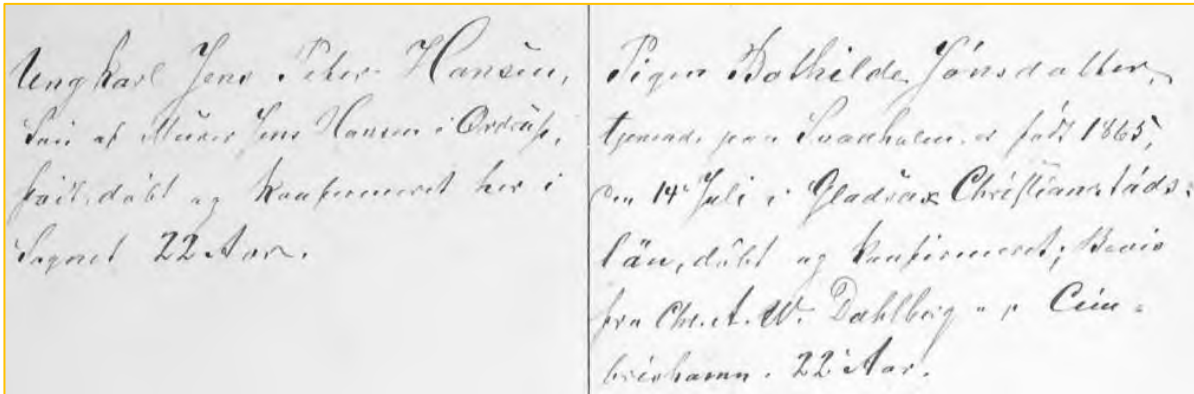 Ungkarl Jens Peter Hansen,
Søn af Murer Jens Hansen i Ordrup,
født, døbt og konfirmeret her i
Sognet 22 Aar.
Pigen Bothilde Jönsdatter,
tjenende paa Svanholm, er født 1865,
den 14de Juli i Gladsax Christianstads-
län, døbt og konfirmeret; Bevis
fra Chr. A. W. Dahlberg Cim-
brishamn. 22 Aar.